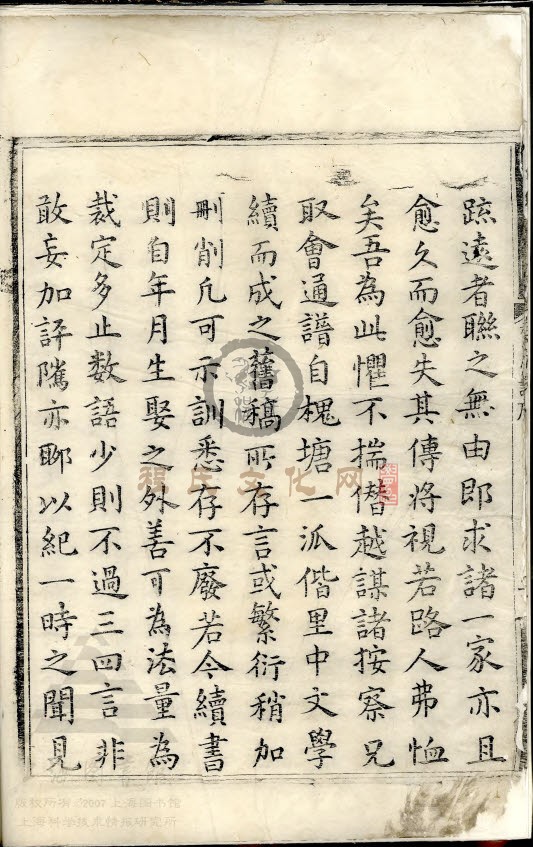 疏遠者聯之無由即求諸一家亦且
愈久而愈失其傳將視若路人弗恤
矣吾為此懼不揣僭越謀諸按察兄
取會通譜自槐塘一派偕里中文學
續而成之舊稿所存言或繁衍稍加
刪削凡可示訓悉存不廢若今續書
則自年月生娶之外善可為法量為
裁定多止数語少則不過三四言非
敢妄加評隲亦聊以紀一時之聞見
程氏文化网
版权所有 2007 上海图书馆
上海科学技术情报研究所